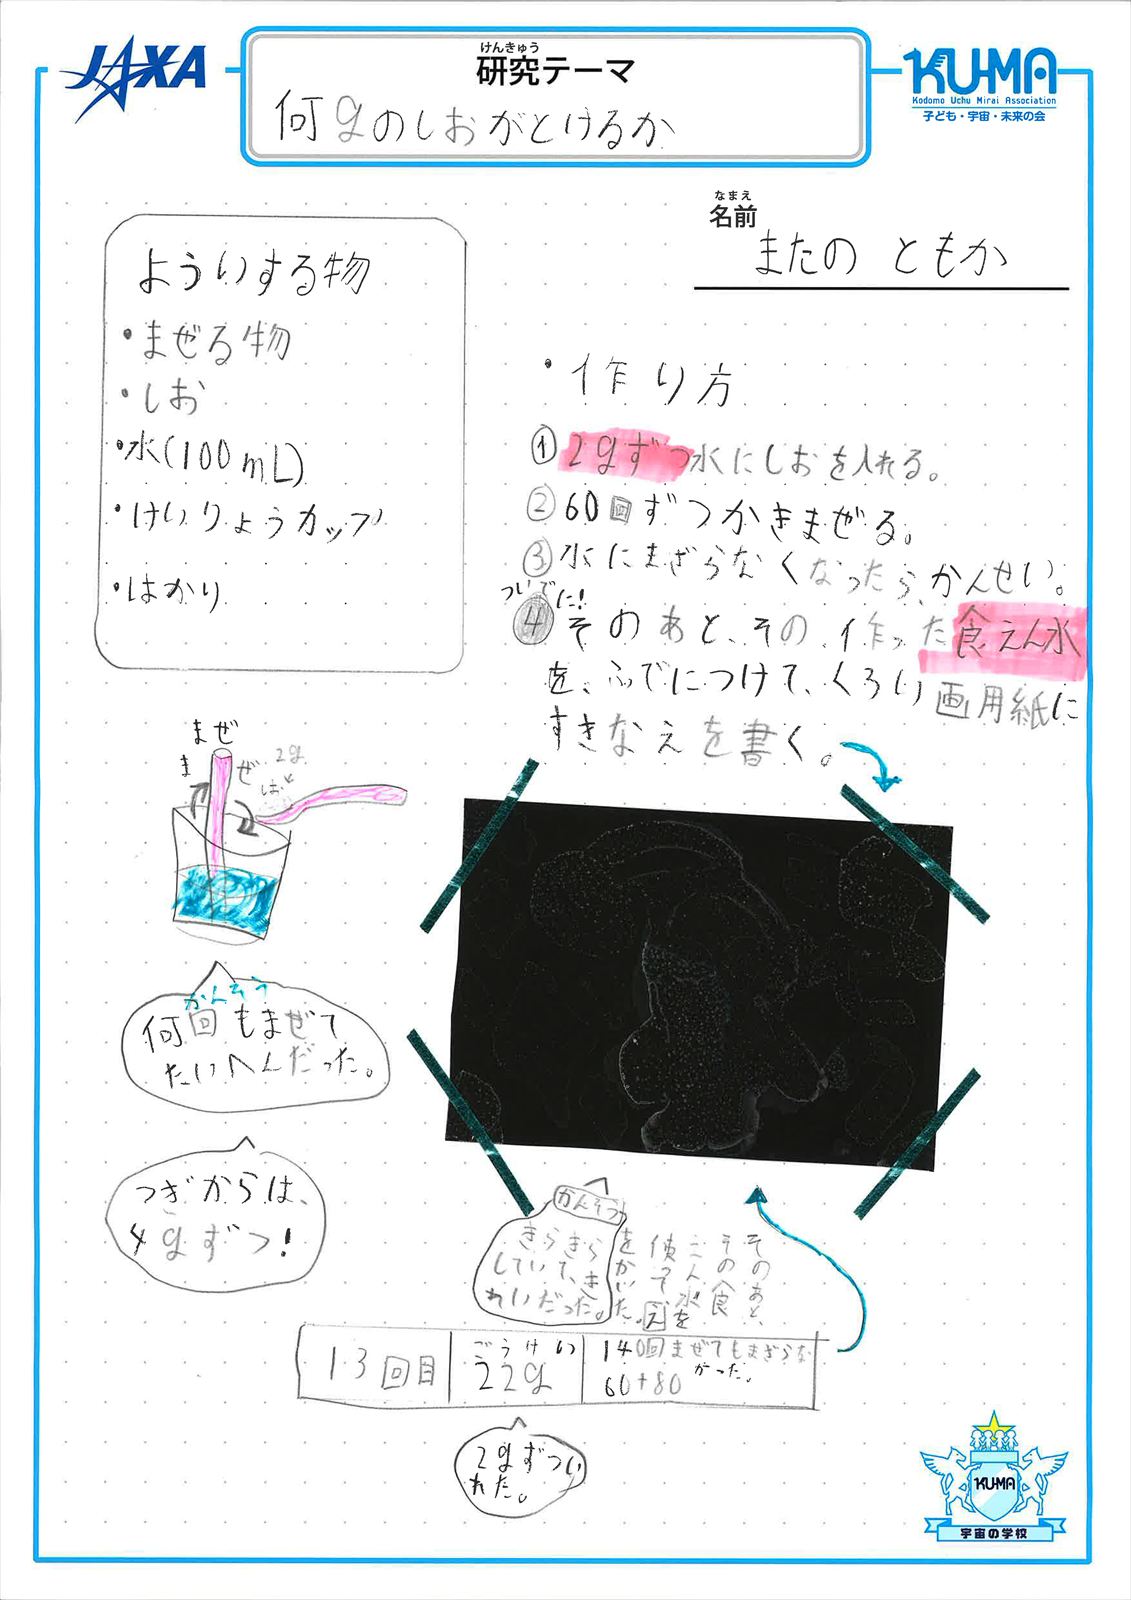 JAXA
けんきゅう
研究テーマ
何gのしおがとけるか
KU-MA
Kodomo Uchu Mirai Association
子ども・宇宙・未来の会
なまえ
名前
またの ともか
よういする物
・まぜる物
・しお
・水(100mL)
・けいりょうカップ
・はかり
・作り方
① 2gずつ水にしおを入れる。
② 60回ずつかきまぜる。
③ 水にまざらなくなったら、かんせい。
ついでに!
④ そのあと、その、作った食えん水
を、ふでにつけて、くろい画用紙に
すきなえを書く。
まぜ
まぜ
2g
しお
かんそう
何回もまぜて
たいへんだった。
つぎからは、
4gずつ!
かんそう
きらきら
していて、き
れいだった。
そのあと、
その食
えん水を
使って、え
をかいた。
13回目
ごうけい
22g
140回まぜてもまざらな
かった。
60+80
2gずつい
れた。
KU-MA
宇宙の学校